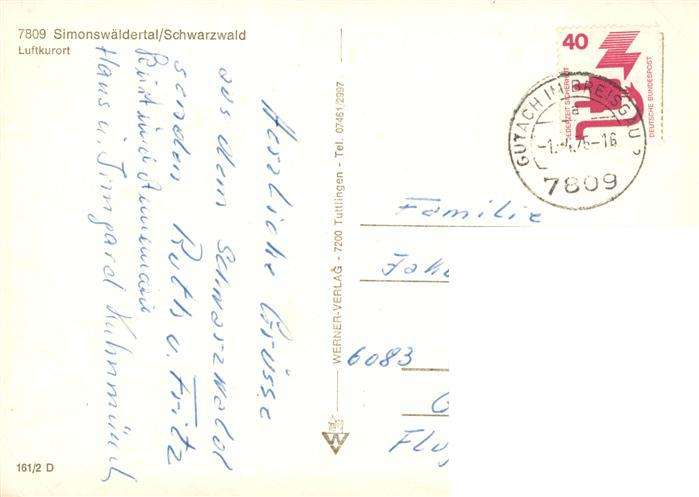 7809 Simonswäldertal/Schwarzwald
Luftkurort
Herzliche Grüsse
aus dem Schwarzwald
senden Ruth u. Fritz
Hans u. Irmgard
161/2 D
WERNER-VERLAG - 7200 Tuttlingen - Tel. 07461/2997
40
JEDERZEIT SICHERHEIT
DEUTSCHE BUNDESPOST
GUTACH IM BREISGAU
a
75-16
7809
Familie
6083